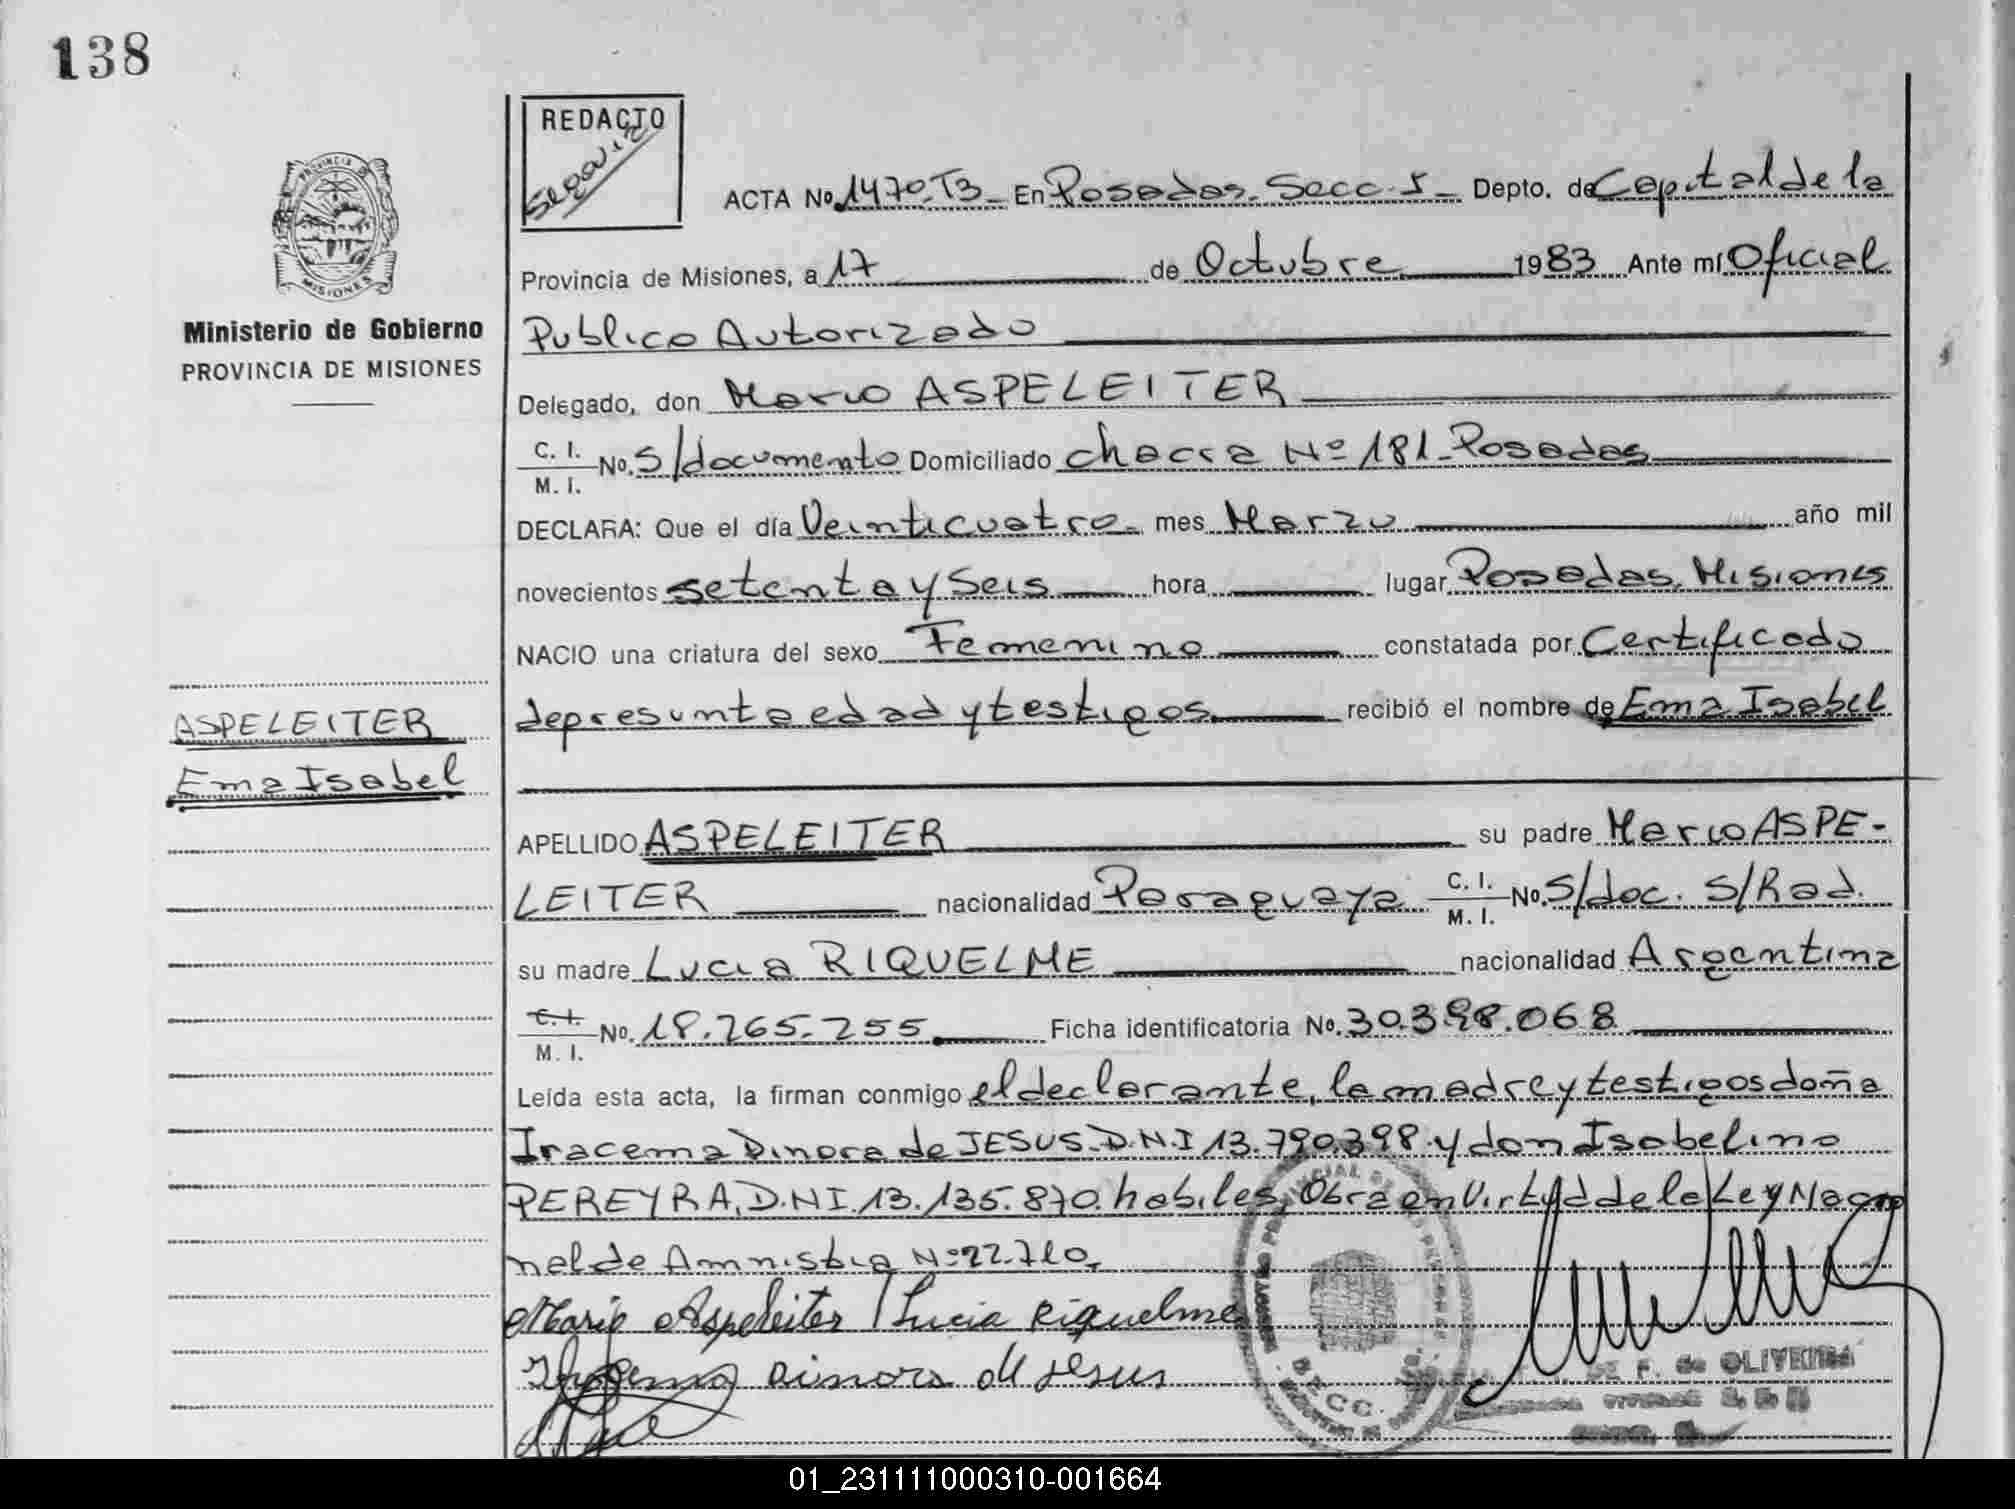 138
REDACTO
Segovia
PROVINCIA DE
MISIONES
Ministerio de Gobierno
PROVINCIA DE MISIONES
ACTA No. 1470-T3 En Posadas. Secc. 1 Depto. de Capital de la
Provincia de Misiones, a 17 de Octubre 1983 Ante mí Oficial
Publico Autorizado
Delegado, don Mario ASPELEITER
C. I.
M. I. No. S/documento Domiciliado chacra Nº 181-Posadas
DECLARA: Que el día Veinticuatro mes Marzo año mil
novecientos setenta y Seis hora lugar Posadas, Misiones
NACIO una criatura del sexo Femenino constatada por Certificado
de presunta edad y testigos recibió el nombre de Ema Isabel
ASPELEITER
Ema Isabel
APELLIDO ASPELEITER su padre Mario ASPE-
LEITER nacionalidad Paraguaya C. I.
M. I. No. S/doc. S/Rad.
su madre Lucia RIQUELME nacionalidad Argentina
C. I.
M. I. No. 18.265.255 Ficha identificatoria No. 30.398.068
Leída esta acta, la firman conmigo el declarante, la madre y testigos doña
Iracema Dinora de JESUS. D.N.I 13.790.398 y don Isabelino
PEREYRA, D.N.I. 13.135.870. habiles, Obra en Virtud de la Ley Nacio
nal de Amnistia Nº 22.710.
Mario Aspeleiter Lucia Riquelme
Dinora de Jesus
F. de OLIVEIRA
01_231111000310-001664